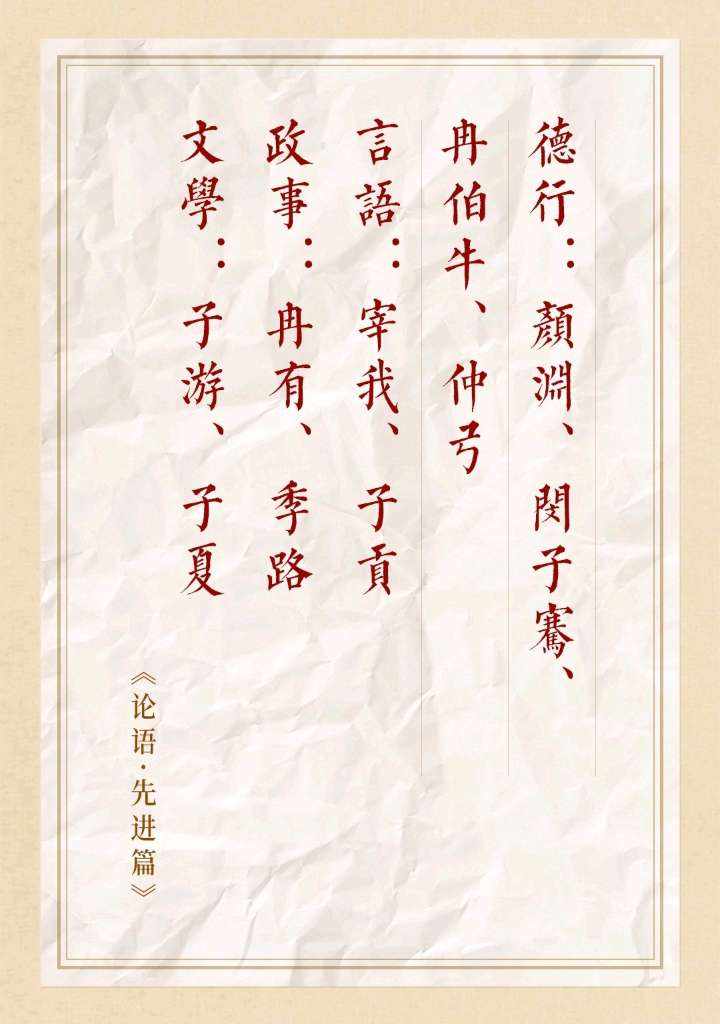 德行：顏淵、閔子騫、
冉伯牛、仲弓
言語：宰我、子貢
政事：冉有、季路
文學：子游、子夏
《论语·先进篇》